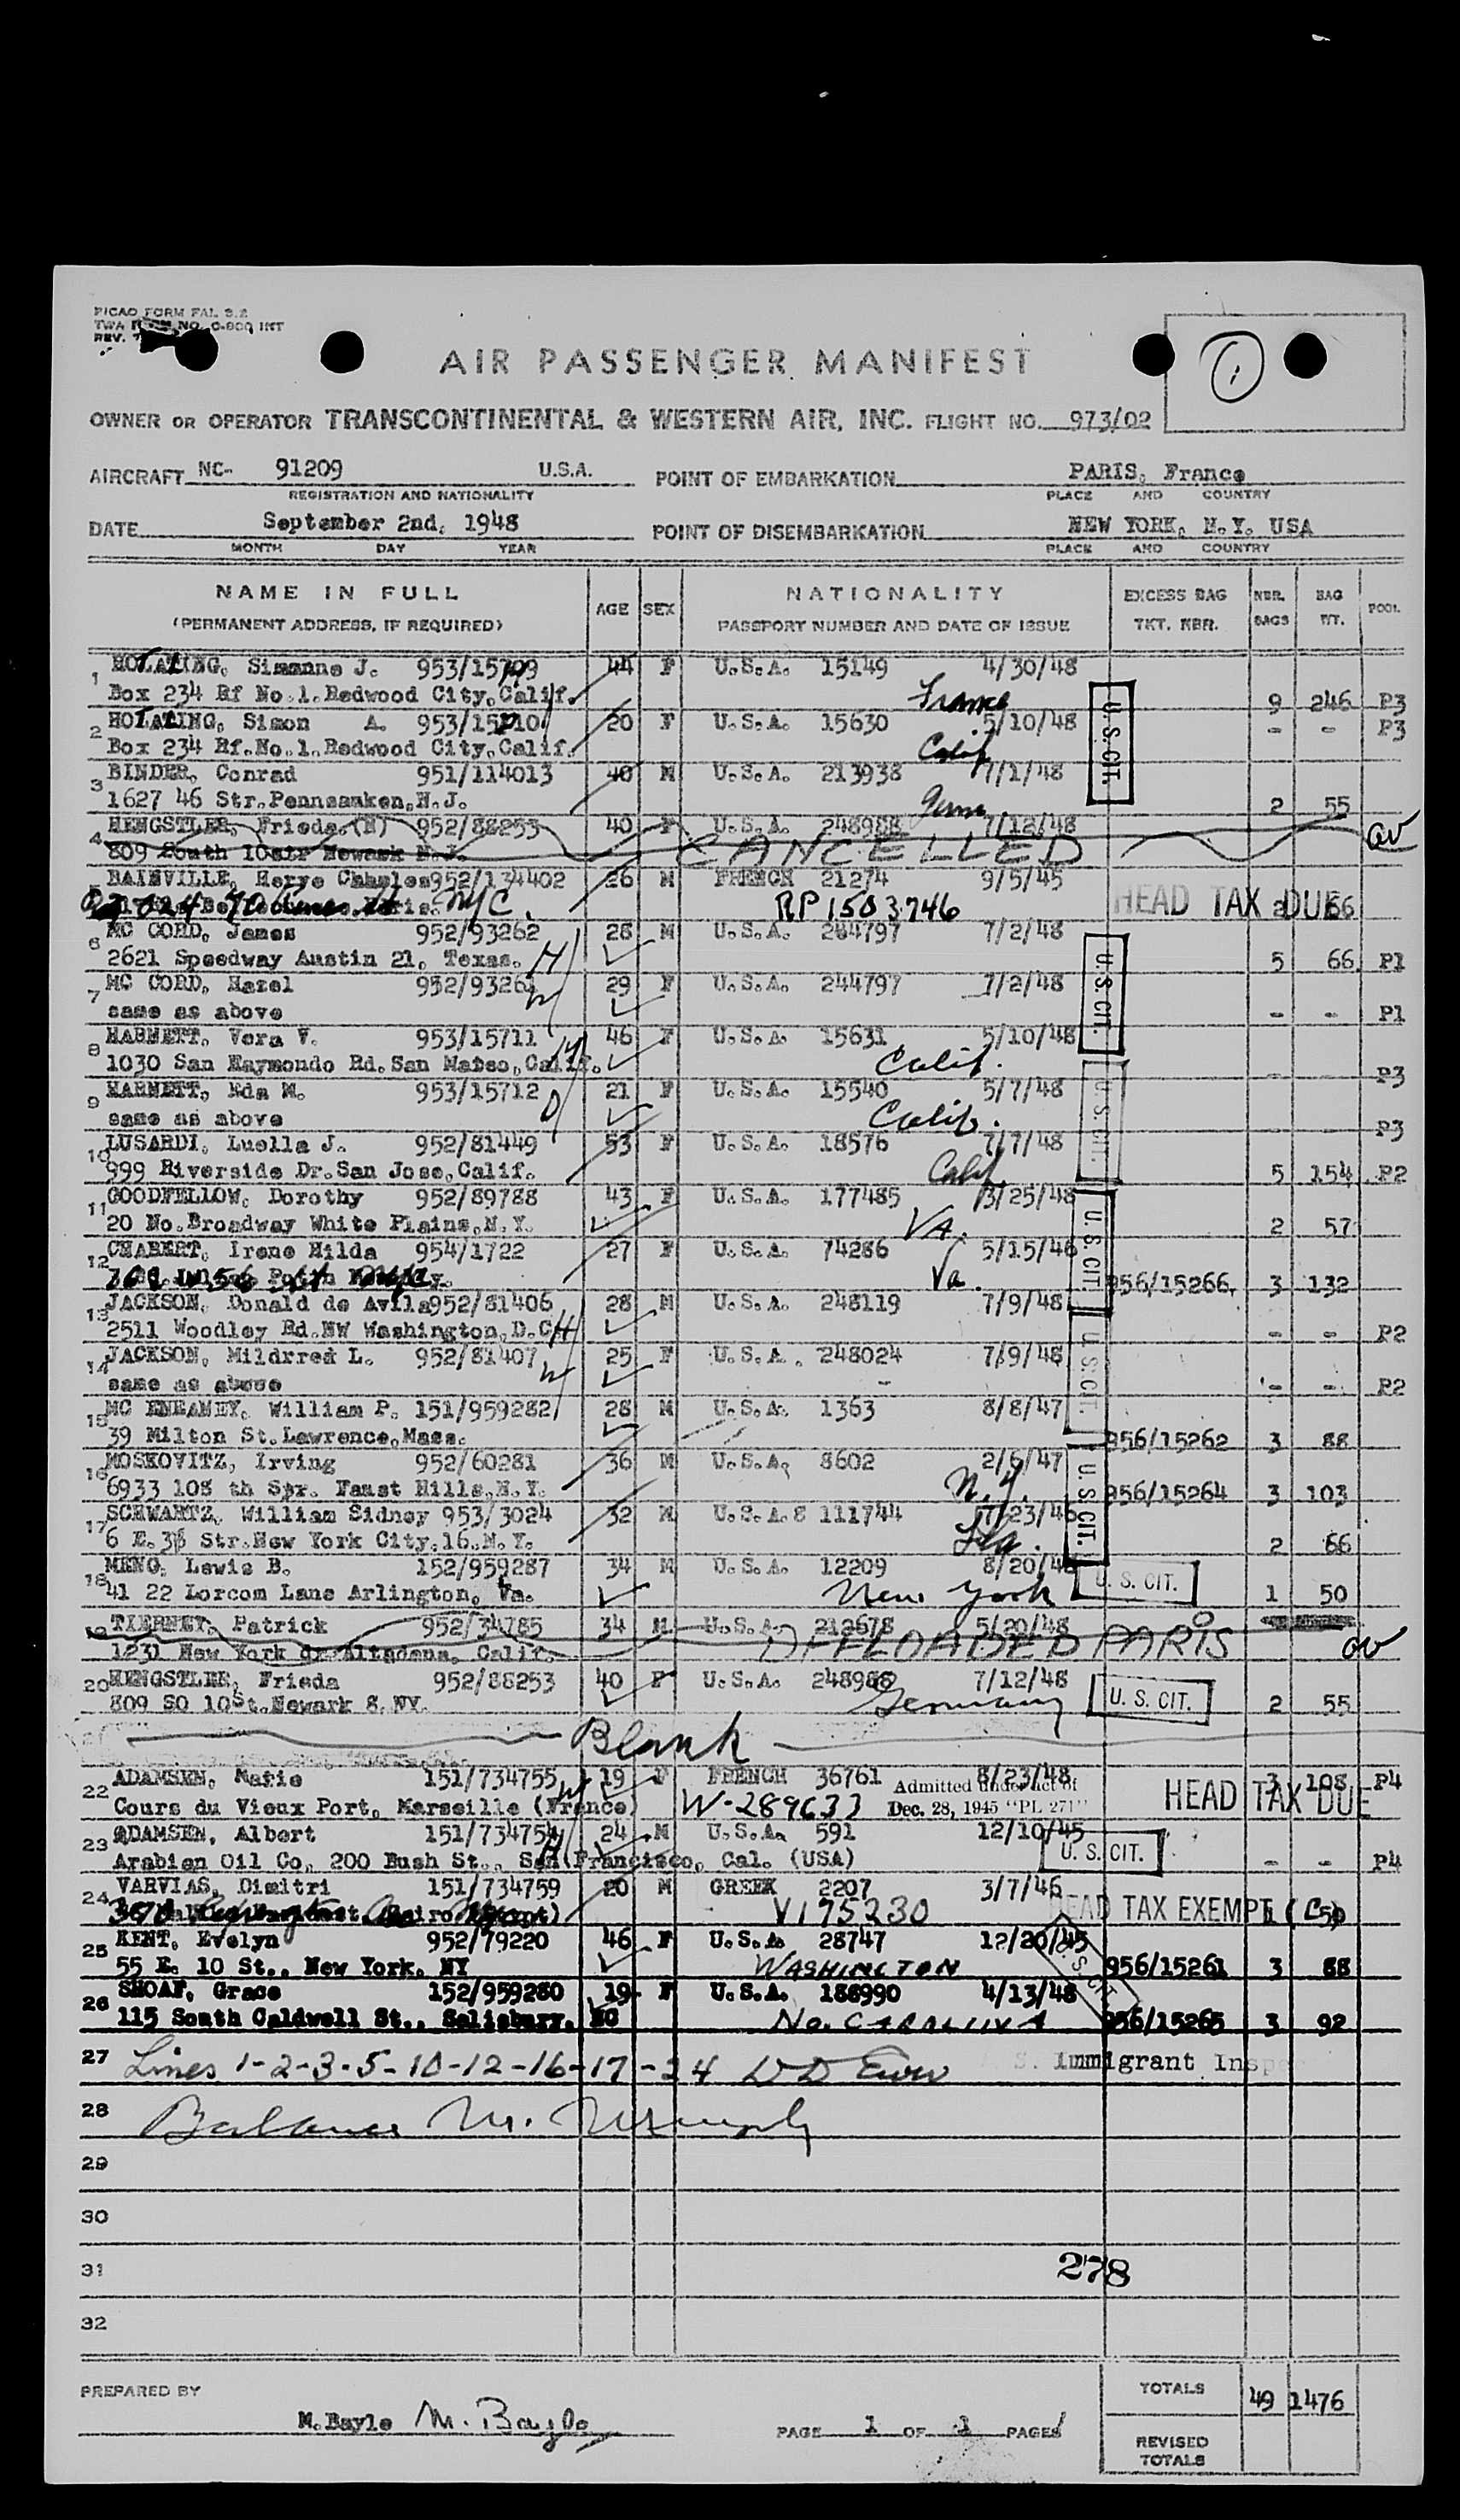 PICAO FORM FAL 3.2
TWA FORM NO. 0-800 INT
REV.
AIR PASSENGER MANIFEST
1
OWNER OR OPERATOR TRANSCONTINENTAL & WESTERN AIR, INC. FLIGHT NO. 973/02
AIRCRAFT NC- 91209 U.S.A. POINT OF EMBARKATION PARIS, France
REGISTRATION AND NATIONALITY PLACE AND COUNTRY
DATE September 2nd, 1948 POINT OF DISEMBARKATION NEW YORK, N.Y. USA
MONTH DAY YEAR PLACE AND COUNTRY
NAME IN FULL AGE SEX NATIONALITY EXCESS BAG NBR. BAG POOL
(PERMANENT ADDRESS, IF REQUIRED) PASSPORT NUMBER AND DATE OF ISSUE TKT. NBR. BAGS WT.
1 HOTALING, Simanne J. 953/15709 44 F U.S.A. 15149 4/30/48
Box 234 Rf No.1.Redwood City,Calif. France 9 246 P3
2 HOTALING, Simon A. 953/15710 20 F U.S.A. 15630 5/10/48 U.S. CIT. - - P3
Box 234 Rf.No.1.Redwood City,Calif. Calif
3 BINDER, Conrad 951/114013 40 M U.S.A. 213938 7/1/48
1627 46 Str.Pennsauken,N.J. Germ. 2 55
4 HENGSTLER, Frieda.(N) 952/88253 40 F U.S.A. 248988 7/12/48
809 South 10str Newark N.J. CANCELLED
5 BAINVILLE, Herve Charles 952/134402 26 M FRENCH 21274 9/5/45
NYC. RP1503746 HEAD TAX DUE 2 66
6 MC CORD, James 952/93262 28 M U.S.A. 244797 7/2/48
2621 Speedway Austin 21, Texas. H U.S. CIT. 5 66 P1
7 MC CORD, Hazel 952/93261 29 F U.S.A. 244797 7/2/48
same as above W - - P1
8 HARNETT, Vera V. 953/15711 46 F U.S.A. 15631 5/10/48
1030 San Raymondo Rd.San Mateo,Calif. M Calif. - - P3
9 HARNETT, Eda M. 953/15712 21 F U.S.A. 15540 5/7/48 U.S. CIT.
same as above D Calif. - - P3
10 LUSARDI, Luella J. 952/81449 53 F U.S.A. 18576 7/7/48
999 Riverside Dr.San Jose,Calif. Calif 5 154 P2
11 GOODFELLOW, Dorothy 952/89788 43 F U.S.A. 177485 3/25/48
20 No.Broadway White Plains,N.Y. VA. U.S. CIT. 2 57
12 CHABERT, Irene Hilda 954/1722 27 F U.S.A. 74286 5/15/46
Va. 956/15266. 3 132
13 JACKSON, Donald de Avila 952/81406 28 M U.S.A. 248119 7/9/48
2511 Woodley Rd.NW Washington,D.C. H - - P2
14 JACKSON, Mildrred L. 952/81407 25 F U.S.A. 248024 7/9/48 U.S. CIT.
same as above W - - P2
15 MC ENEAMEY, William P. 151/959282 28 M U.S.A. 1363 8/8/47
39 Milton St.Lawrence,Mass. 956/15262 3 88
16 MOSKOVITZ, Irving 952/60281 36 M U.S.A. 8602 2/6/47
6933 108 th Spr. Faust Hills,N.Y. N.Y. U.S. CIT. 956/15264 3 103
17 SCHWARTZ, William Sidney 953/3024 32 M U.S.A.8 111744 7/23/46
6 E.38 Str.New York City.16.N.Y. 2 66
18 MENG, Lewis B. 152/959287 34 M U.S.A. 12209 8/20/48
41 22 Lorcom Lane Arlington, Va. New York U. S. CIT. 1 50
19 TIERNEY, Patrick 952/34785 34 M U.S.A. 212678 5/20/48
1231 New York dr Altadena, Calif. OFFLOADED PARIS
20 HENGSTLER, Frieda 952/88253 40 F U.S.A. 248988 7/12/48
809 SO 10St.Newark 8.NY. Germany U. S. CIT. 2 55
Blank
22 ADAMSEN, Marie 151/734755 W 19 F FRENCH 36761 8/23/48
Cours du Vieux Port, Marseille (France) W-289633 Admitted under act of Dec. 28, 1945 "PL 271" HEAD TAX DUE 3 108 P4
23 ADAMSEN, Albert 151/734754 H 24 M U.S.A. 591 12/10/45
Arabian Oil Co, 200 Bush St., San Francisco, Cal. (USA) U. S. CIT. - - P4
24 VARVIAS, Dimitri 151/734759 20 M GREEK 2207 3/7/46
V175230 HEAD TAX EXEMPT (C)
25 KENT, Evelyn 952/79220 46 F U.S.A 28747 12/20/45
55 E. 10 St., New York, NY WASHINGTON 956/15261 3 88
26 SHOAF, Grace 152/959280 19 F U.S.A. 186990 4/13/48
115 South Caldwell St., Salisbury, NC No. CAROLINA 956/15265 3 92
27 Lines 1-2-3-5-10-12-16-17-24 U.S. Immigrant Inspec
28 Balance M.
29
30
31 278
32
PREPARED BY TOTALS 49 1476
M.Bayle M. Bayle PAGE 1 OF 1 PAGES
REVISED
TOTALS